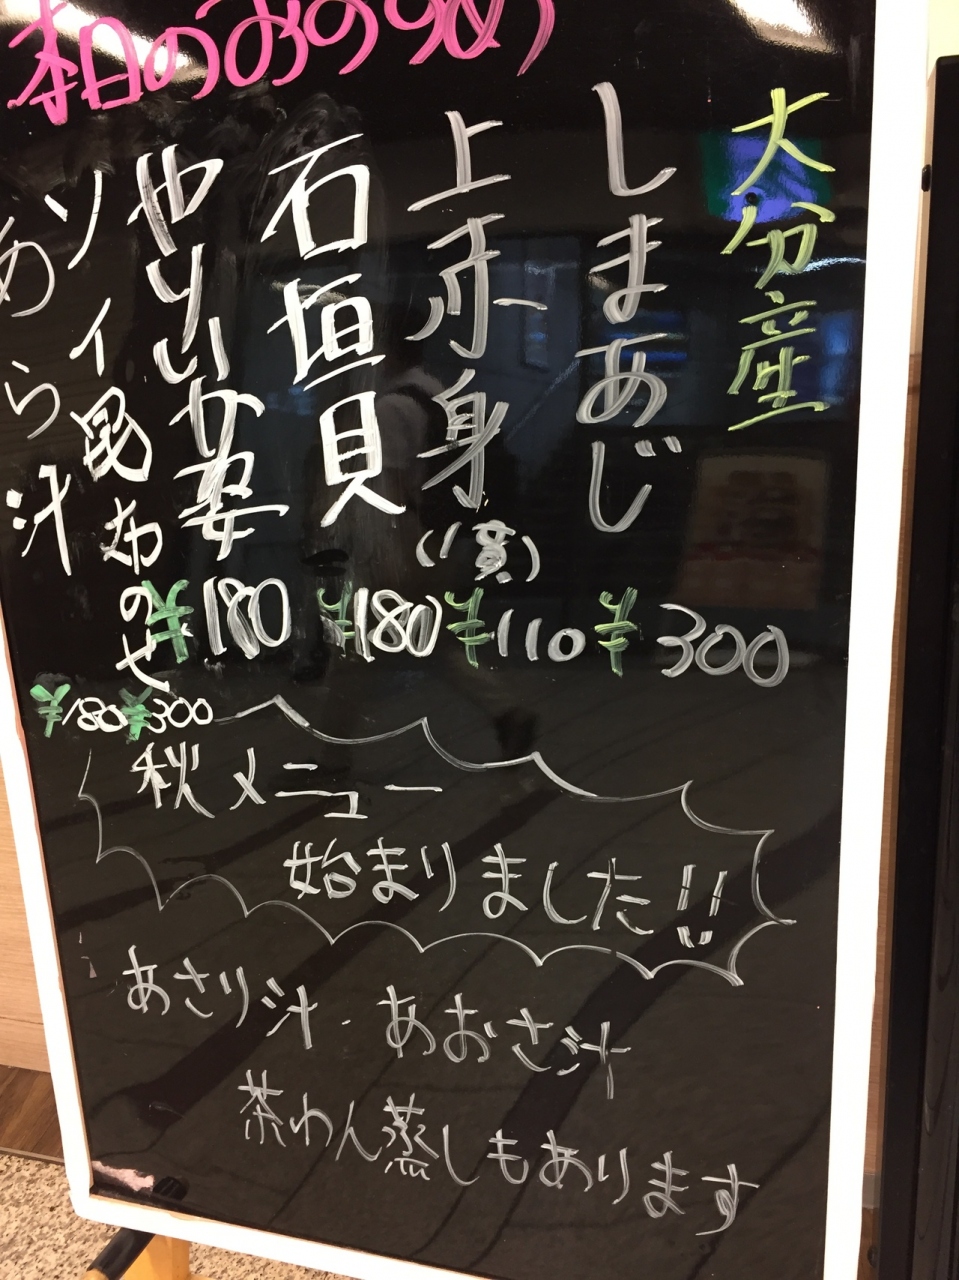 本日のおすすめ
大分産
しまあじ
¥300
上赤身
(1貫)
¥110
石垣貝
¥180
やりいか姿
¥180
ソイ昆布のせ
¥300
あら汁
¥180
秋メニュー
始まりました!!
あさり汁・あおさ汁
茶わん蒸しもあります